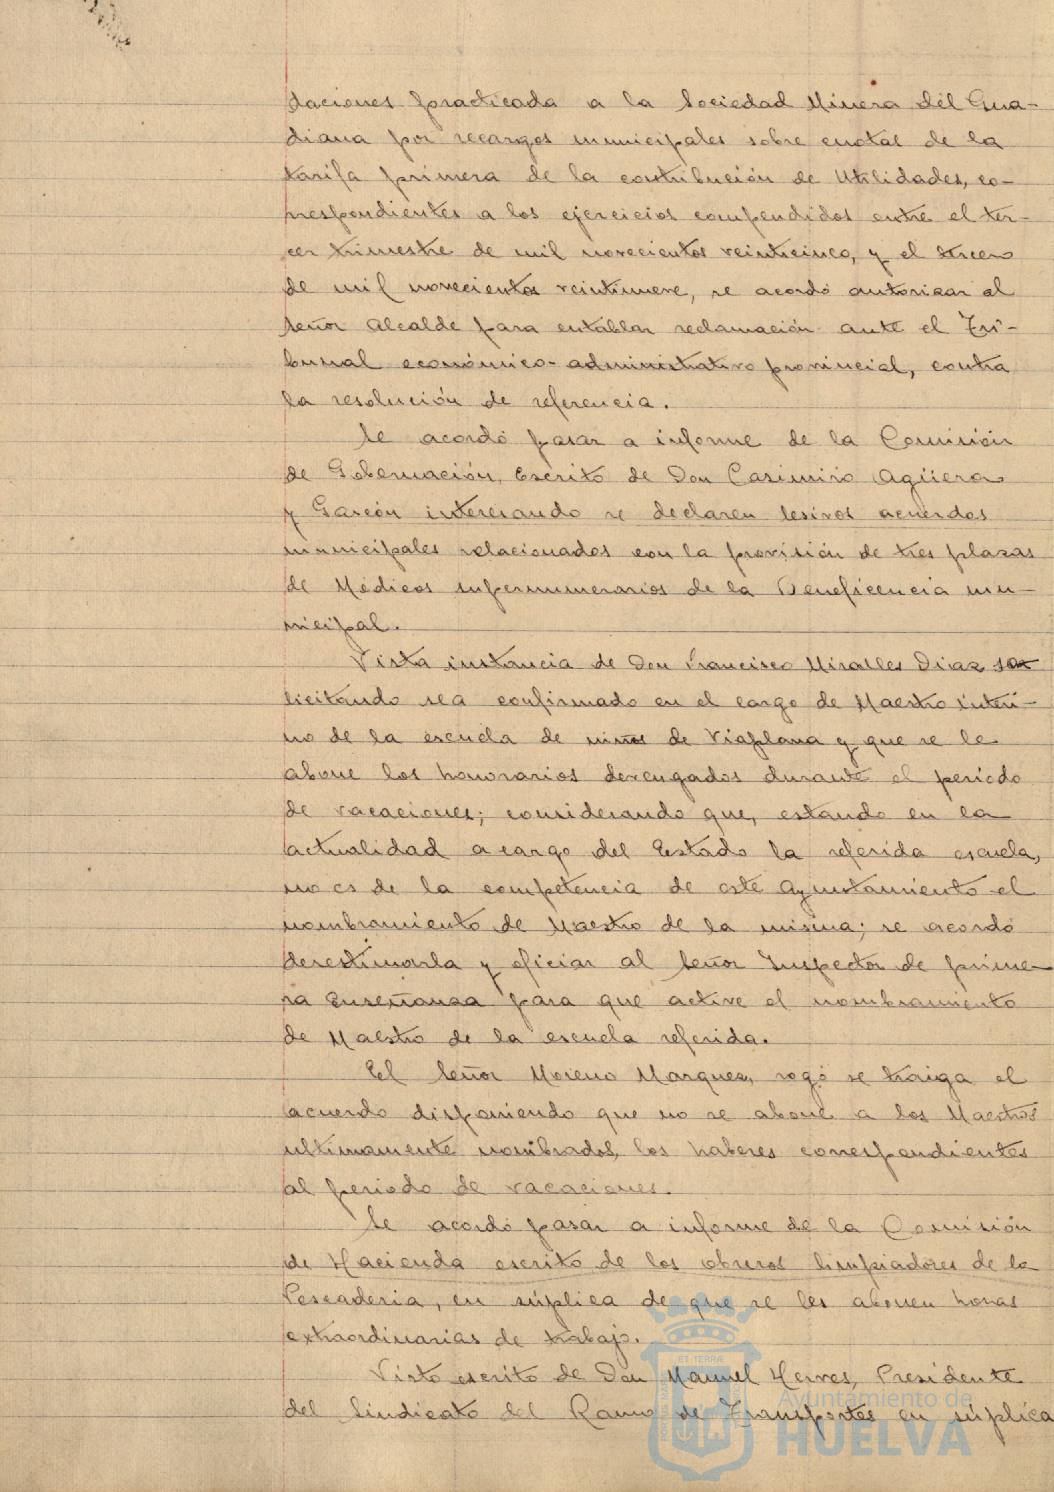 daciones practicada a la Sociedad Minera del Gua-
diana por recargos municipales sobre cuotas de la
tarifa primera de la contribución de Utilidades, co-
rrespondientes a los ejercicios compendidos entre el ter-
cer trimestre de mil novecientos veinticinco, y el tercero
de mil novecientos veintinueve, se acordó autorizar al
Señor Alcalde para entablar reclamación ante el Tri-
bunal económico-administrativo provincial, contra
la resolución de referencia.
Se acordó pasar a informe de la Comisión
de Gobernación, escrito de Don Casimiro Agüera
y Garzón interesando se declaren lesivos acuerdos
municipales relacionados con la provisión de tres plazas
de Médicos supernumerarios de la Beneficencia mu-
nicipal.
Vista instancia de Don Francisco Miralles Diaz so-
licitando sea confirmado en el cargo de Maestro interi-
no de la escuela de niños de Viaplana y que se le
abone los honorarios devengados durante el periodo
de vacaciones; considerando que, estando en la
actualidad a cargo del Estado la referida escuela,
no es de la competencia de este Ayuntamiento el
nombramiento de Maestro de la misma; se acordó
desestimarla y oficiar al Señor Inspector de prime-
ra Enseñanza para que active el nombramiento
de Maestro de la escuela referida.
El Señor Moreno Marquez, rogó se traiga el
acuerdo disponiendo que no se abone a los Maestros
ultimamente nombrados, los haberes correspondientes
al periodo de vacaciones.
Se acordó pasar a informe de la Comisión
de Hacienda escrito de los obreros limpiadores de la
Pescaderia, en súplica de que se les abonen horas
extraordinarias de trabajo.
Visto escrito de Don Manuel Herves, Presidente
del Sindicato del Ramo de Transportes en súplica
Ayuntamiento de
HUELVA